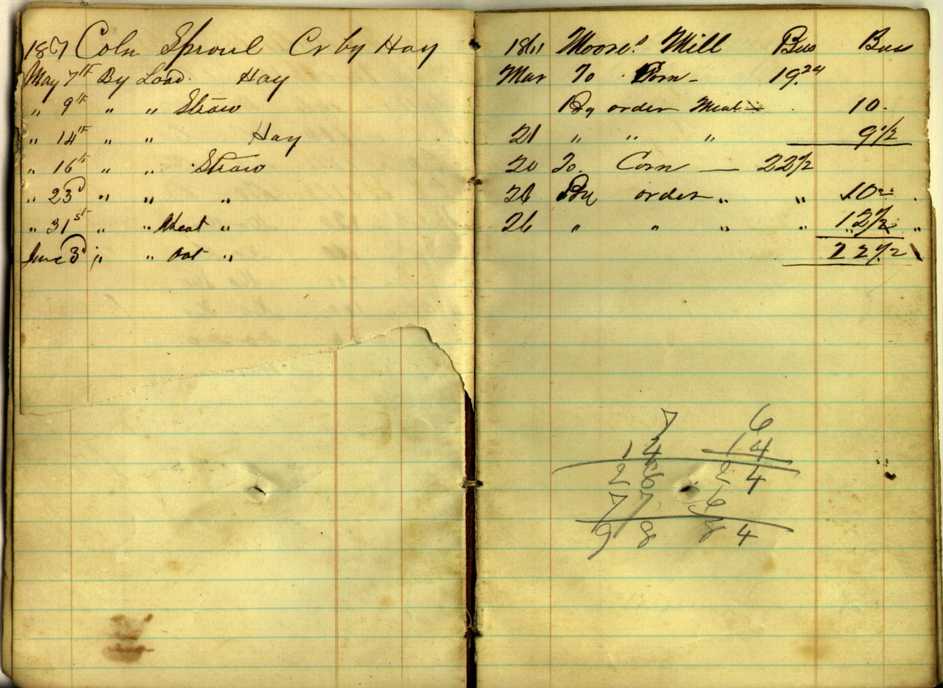 1861 Coln Sproul Cr by Hay
May 7th By Load Hay
" 9th " " Straw
" 14th " " Hay
" 16th " " Straw
" 23d " " "
" 31st " " Wheat "
June 3d " " Oat "
1861 Moores Mill Bus Bus
Mar To Corn 19.24
By order Meal 10.
21 " " " 9 1/2
20 To Corn — 22 1/2
26 By order " " 10 "
26 " " " " 12 1/2 "
22 1/2
7 6
14 14
28 24
7 7 6
98 84